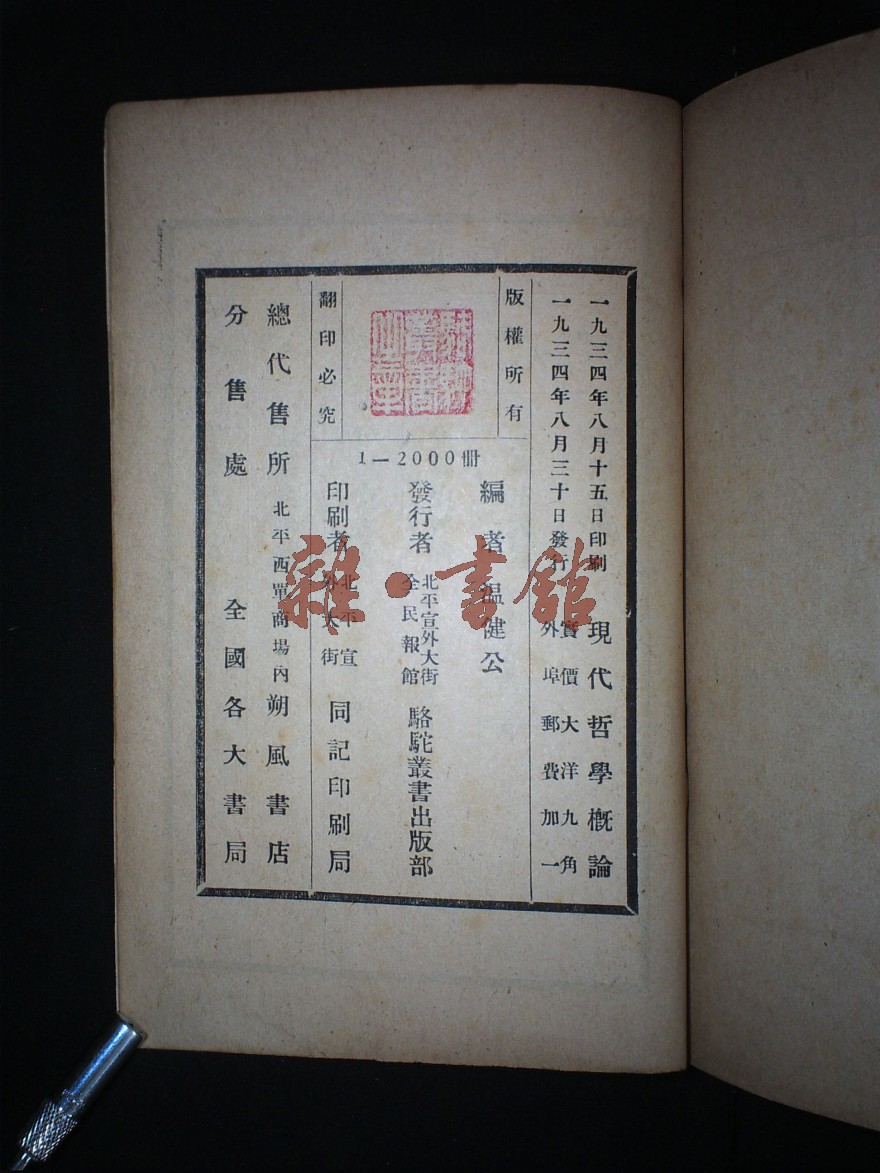 一九三四年八月十五日印刷
一九三四年八月三十日發行
現代哲學概論
實價大洋九角
外埠郵費加一
版權所有
翻印必究
1—2000冊
編者 温健公
發行者 北平宣外大街
全民報館
駱駝叢書出版部
印刷者 北平宣
外大街
同記印刷局
總代售所 北平西單商場內 朔風書店
分售處 全國各大書局
雜·書館